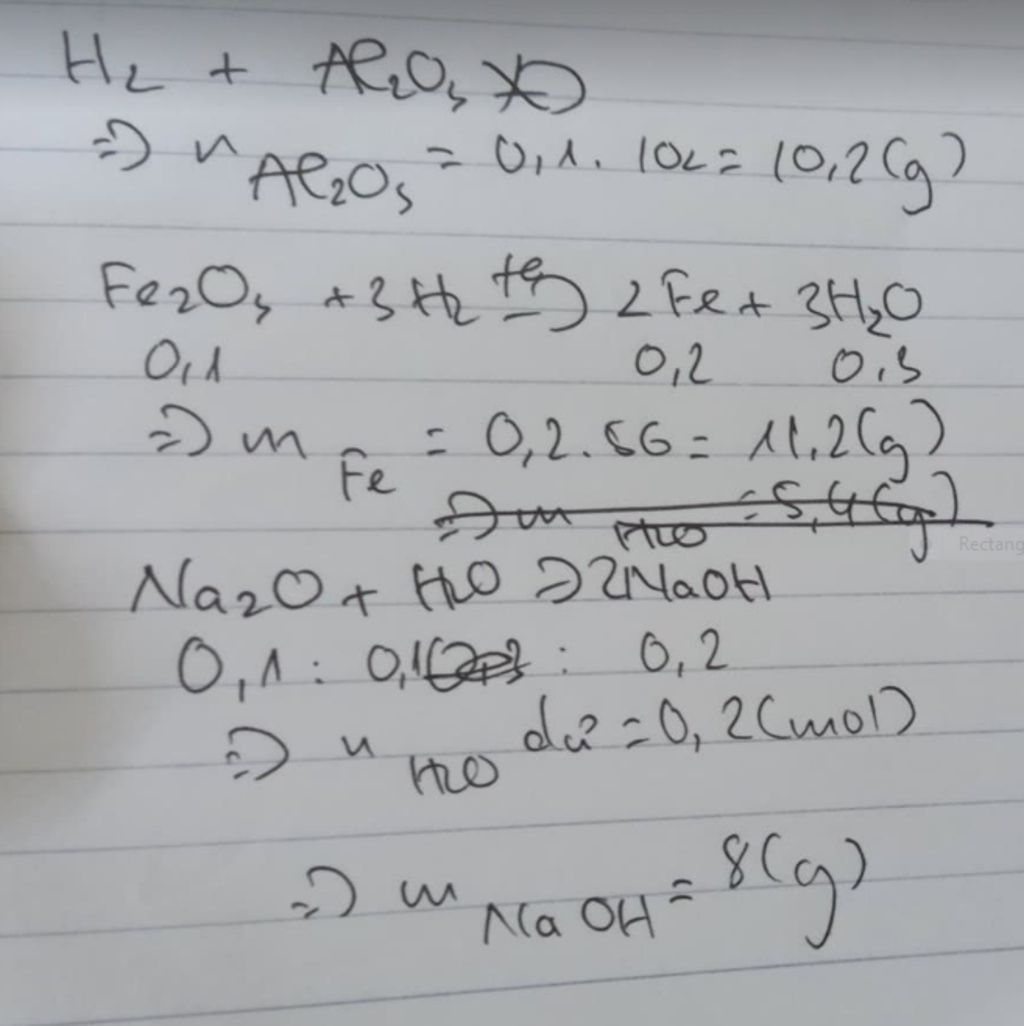 H₂ + Al₂O₃
=> n Al₂O₃ = 0,1. 102 = 10,2 (g)
Fe₂O₃ + 3H₂ to=> 2Fe + 3H₂O
0,1 0,2 0,3
=> m Fe = 0,2.56 = 11,2 (g)
=> m H₂O = 5,4 (g)
Rectang
Na₂O + H₂O => 2NaOH
0,1 : 0,1 : 0,2
=> n H₂O dư = 0,2 (mol)
=> m NaOH = 8 (g)